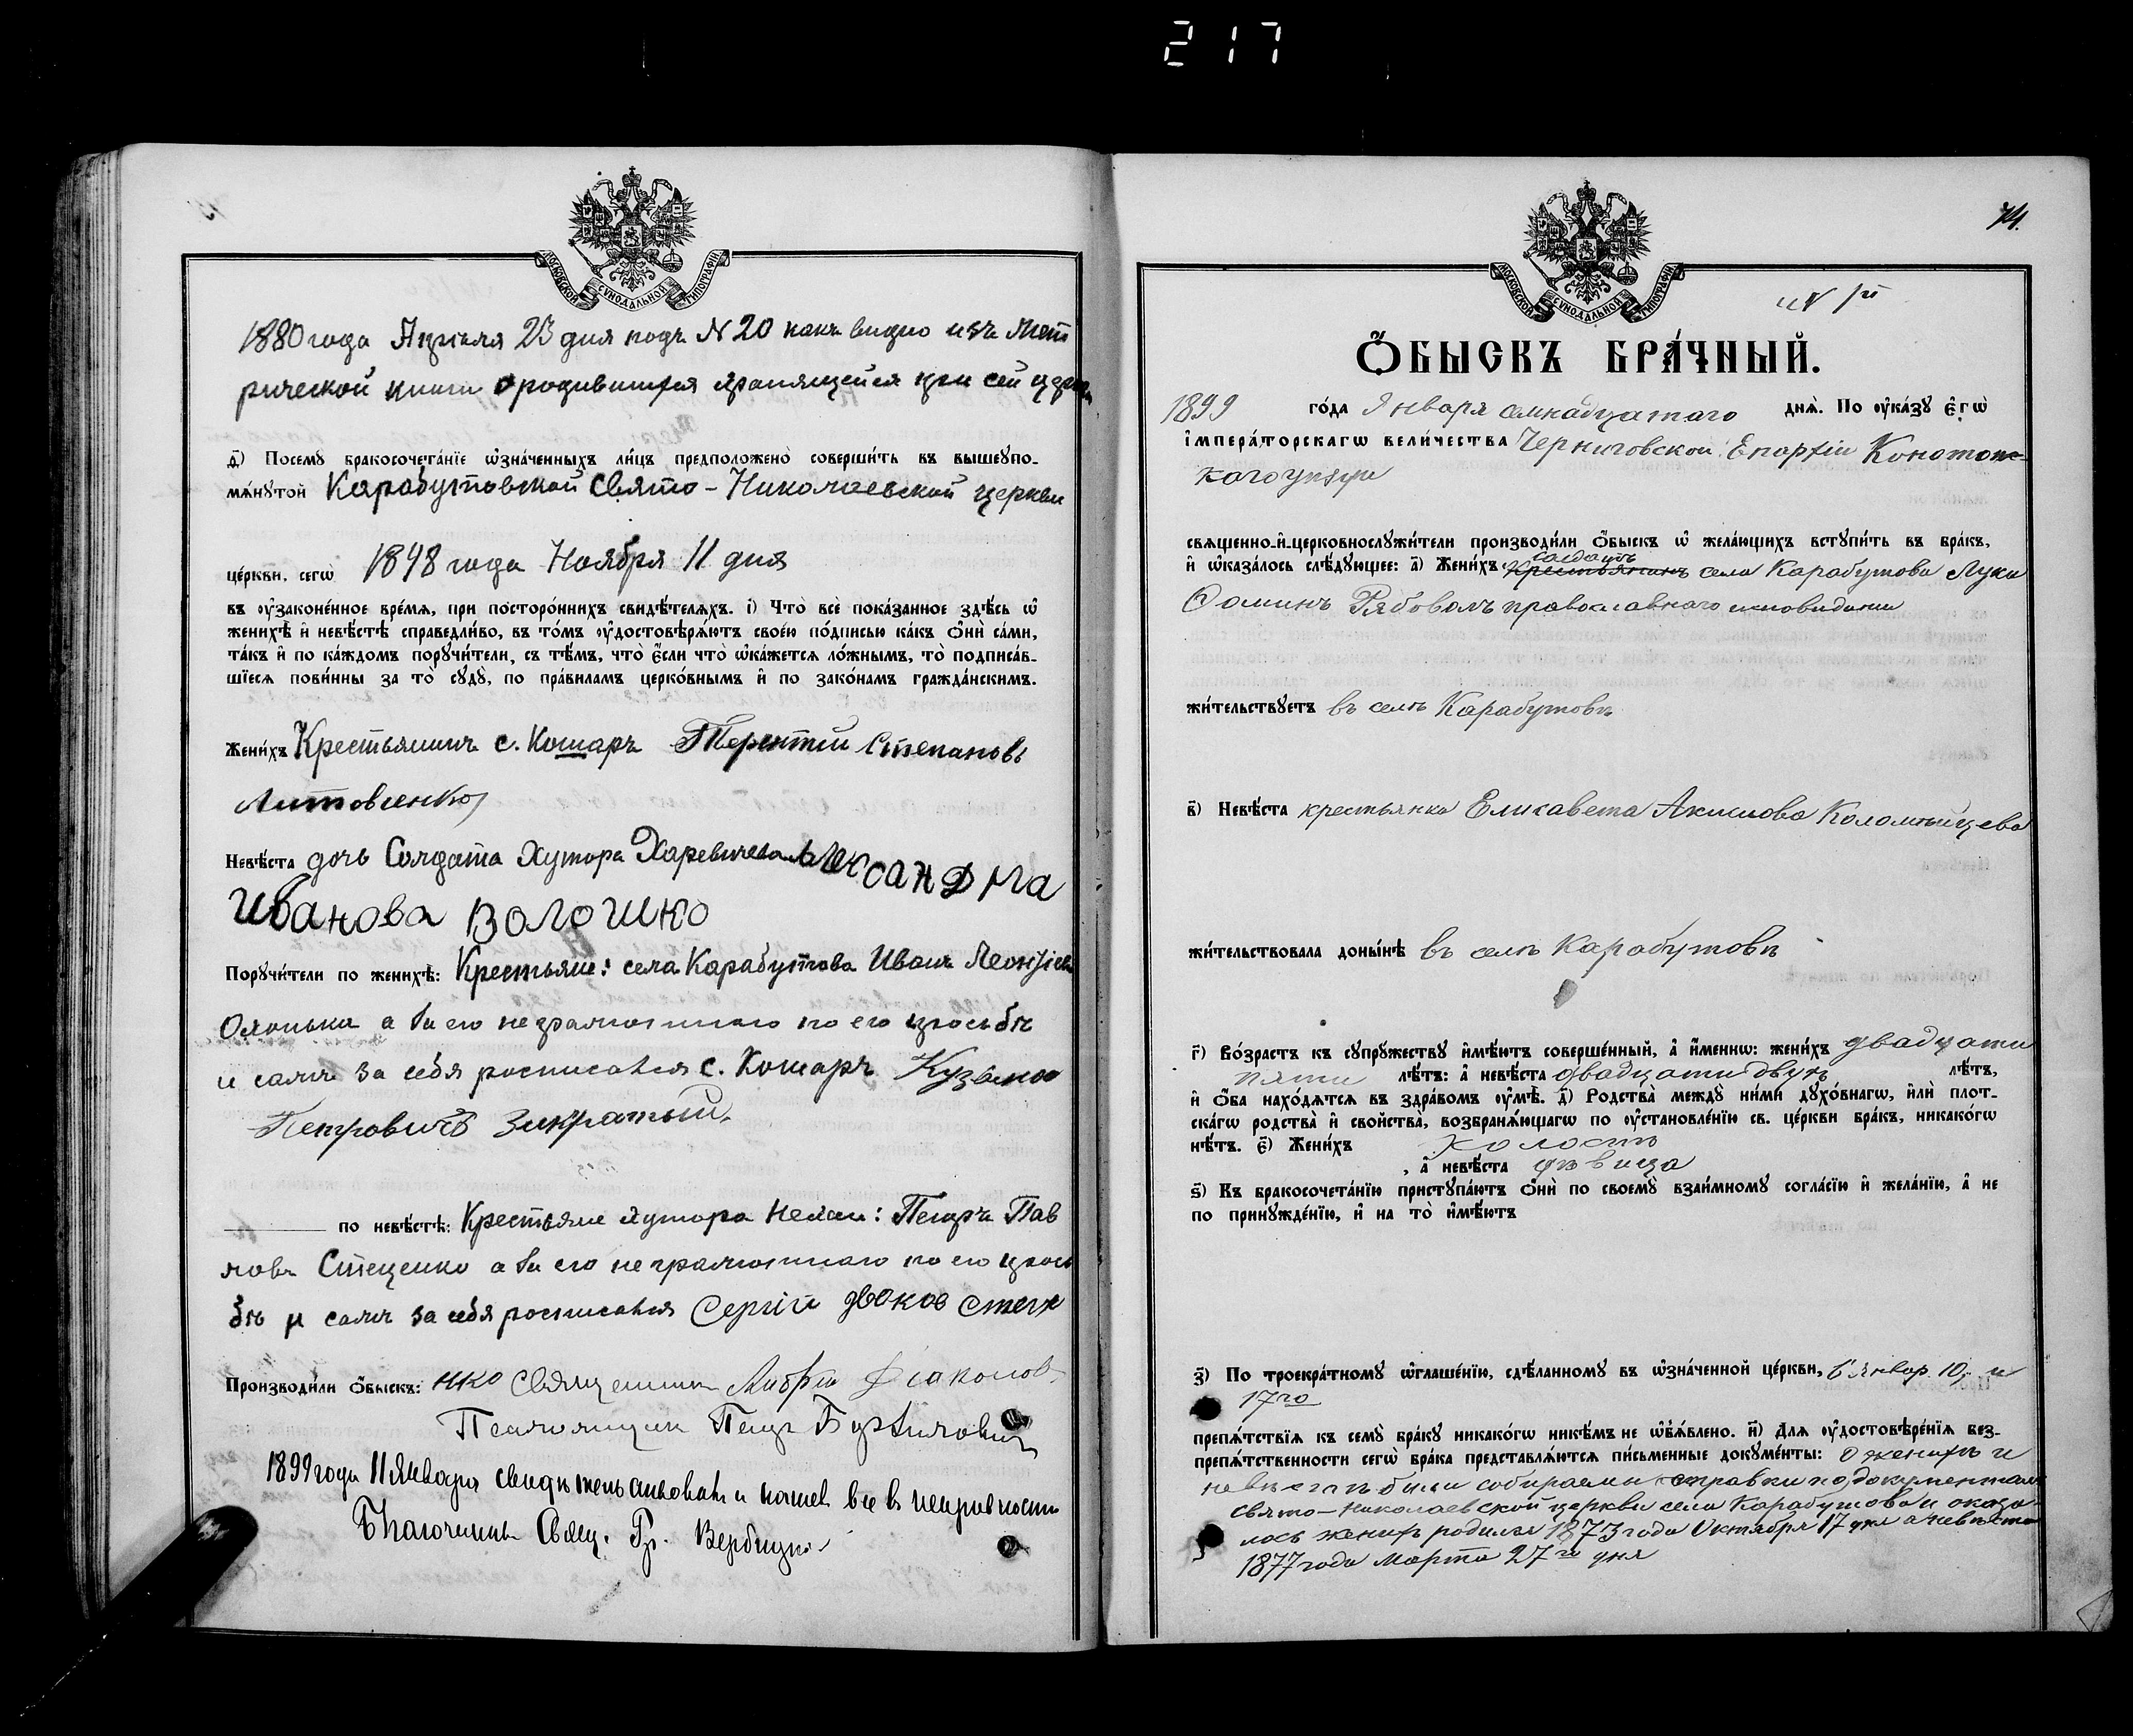 217
МОСКОВСКОЙ СѴНОДАЛЬНОЙ ТИПОГРАФІИ
1880 года Апрѣля 23 дня подъ N 20 какъ видно изъ Мет
рической книги о родившихся хранящейся при сей церкв
д҃) Посемꙋ бракосочета́нїе ѡ҆зна́ченныхъ ли́цъ предположено̀ соверши́ть въ вышеꙋпо-
мѧ́нꙋтой Карабутовской Свято-Николаевской церкви
це́ркви, сегѡ̀ 1898 года Ноября 11 дня
въ ᲂу҆зако́не́нное вре́мѧ, при посторо́ннихъ свидѣ́телѧхъ. і҃) Что̀ всѐ пока́занное здѣ́сь ѡ҆
женихѣ̀ и҆ невѣ́стѣ справедли́во, въ то́мъ ᲂу҆достовѣрѧ́ютъ свое́ю по́дписью ка́къ ѻ҆нѝ са́ми,
та́къ и҆ по ка́ждомъ порꙋчи́тели, съ тѣ́мъ, что̀ є҆́сли что̀ ѡ҆ка́жетсѧ ло́жнымъ, то̀ подписа́в-
шїесѧ пови́нны за то̀ сꙋдꙋ̀, по пра́виламъ церко́внымъ и҆ по зако́намъ гражда́нскимъ.
Жени́хъ Крестьянинъ с. Кошаръ Терентій Степановъ
Литовченко
Невѣ́ста дочь Солдата Хутора Харевичева Александра
Иванова Волошко
Порꙋчи́тели по женихѣ̀: Крестьяне: села Карабутова Иванъ Леонтіевъ
а за его неграмотнаго по его просьбѣ
и самъ за себя росписался с. Кошаръ Кузьма
Петровичъ
по невѣ́стѣ: Крестьяне хутора Петръ Пав
ловъ Стеценко а за его неграмотнаго по его прось
бѣ и самъ за себя росписался Сергій Стеце
Производи́ли ѻ҆́быскъ: нко Священникъ Діаконов
Псаломщик Петр
1899 года 11 Января свидѣтельствовалъ и нашел все в исправности
Благочинный Свящ. Гр. Вербицкій
74.
МОСКОВСКОЙ СѴНОДАЛЬНОЙ ТИПОГРАФІИ
Ѻ҆́БЫСКЪ БРА́ЧНЫЙ.
1899 го́да Января семнадцатаго днѧ̀. По ᲂу҆ка́зꙋ є҆гѡ̀
і҆мпера́торскагѡ вели́чества Черниговской Епархіи Конотоп-
скаго уѣзда
свѧще́нно-и҆-церковнослꙋжи́тели производи́ли ѻ҆́быскъ ѡ҆ жела́ющихъ встꙋпи́ть въ бра́къ,
солдатъ
и҆ ѡ҆каза́лось слѣ́дꙋющее: а҃) Жени́хъ Крестьянинъ села Карабутова Лука
Ѳоминъ Рябовалъ православнаго исповѣданія
жи́тельствꙋетъ въ селѣ Карабутовѣ
в҃) Невѣ́ста крестьянка Елисавета Акимова Коломѣйцева
жи́тельствовала доны́нѣ въ селѣ Карабутовѣ
г҃) Во́зрастъ къ сꙋпрꙋ́жествꙋ и҆мѣ́ютъ соверше́нный, а҆ и҆́меннѡ: жени́хъ двадцати
пяти лѣ́тъ: а҆ невѣ́ста двадцати двухъ лѣ́тъ,
и҆ ѻ҆́ба нахо́дѧтсѧ въ здра́вомъ ᲂу҆мѣ̀. д҃) Родства̀ междꙋ̀ ни́ми дꙋхо́внагѡ, и҆лѝ плот-
ска́гѡ родства̀ и҆ сво́йства, возбранѧ́ющагѡ по ᲂу҆становле́нїю св. це́ркви бра́къ, никако́гѡ
нѣ́тъ. є҃) Жени́хъ холостъ
, а҆ невѣ́ста дѣвица
ѕ҃) Къ бракосочета́нїю пристꙋпа́ютъ ѻ҆нѝ по своемꙋ̀ взаи́мномꙋ согла́сїю и҆ жела́нїю, а҆ не
по принꙋжде́нїю, и҆ на то̀ и҆мѣ́ютъ
з҃) По троекра́тномꙋ ѡ҆глаше́нїю, сдѣ́ланномꙋ въ ѡ҆зна́ченной це́ркви, 6 Январ. 10, и
17го
препѧ́тствїѧ къ семꙋ̀ бра́кꙋ никако́гѡ никѣ́мъ не ѡ҆б̾ѧ́влено. и҃) Для ᲂу҆достовѣре́нїѧ без-
препѧ́тственности сегѡ̀ бра́ка представлѧ́ютсѧ пи́сьменные докꙋме́нты: О женихѣ и
невѣстѣ были собираемы справки по документам
Свято-Николаевской церкви села Карабутова и оказа
лось женихъ родился 1873 года Октября 17 дня а невѣста
1877 года Марта 27го дня